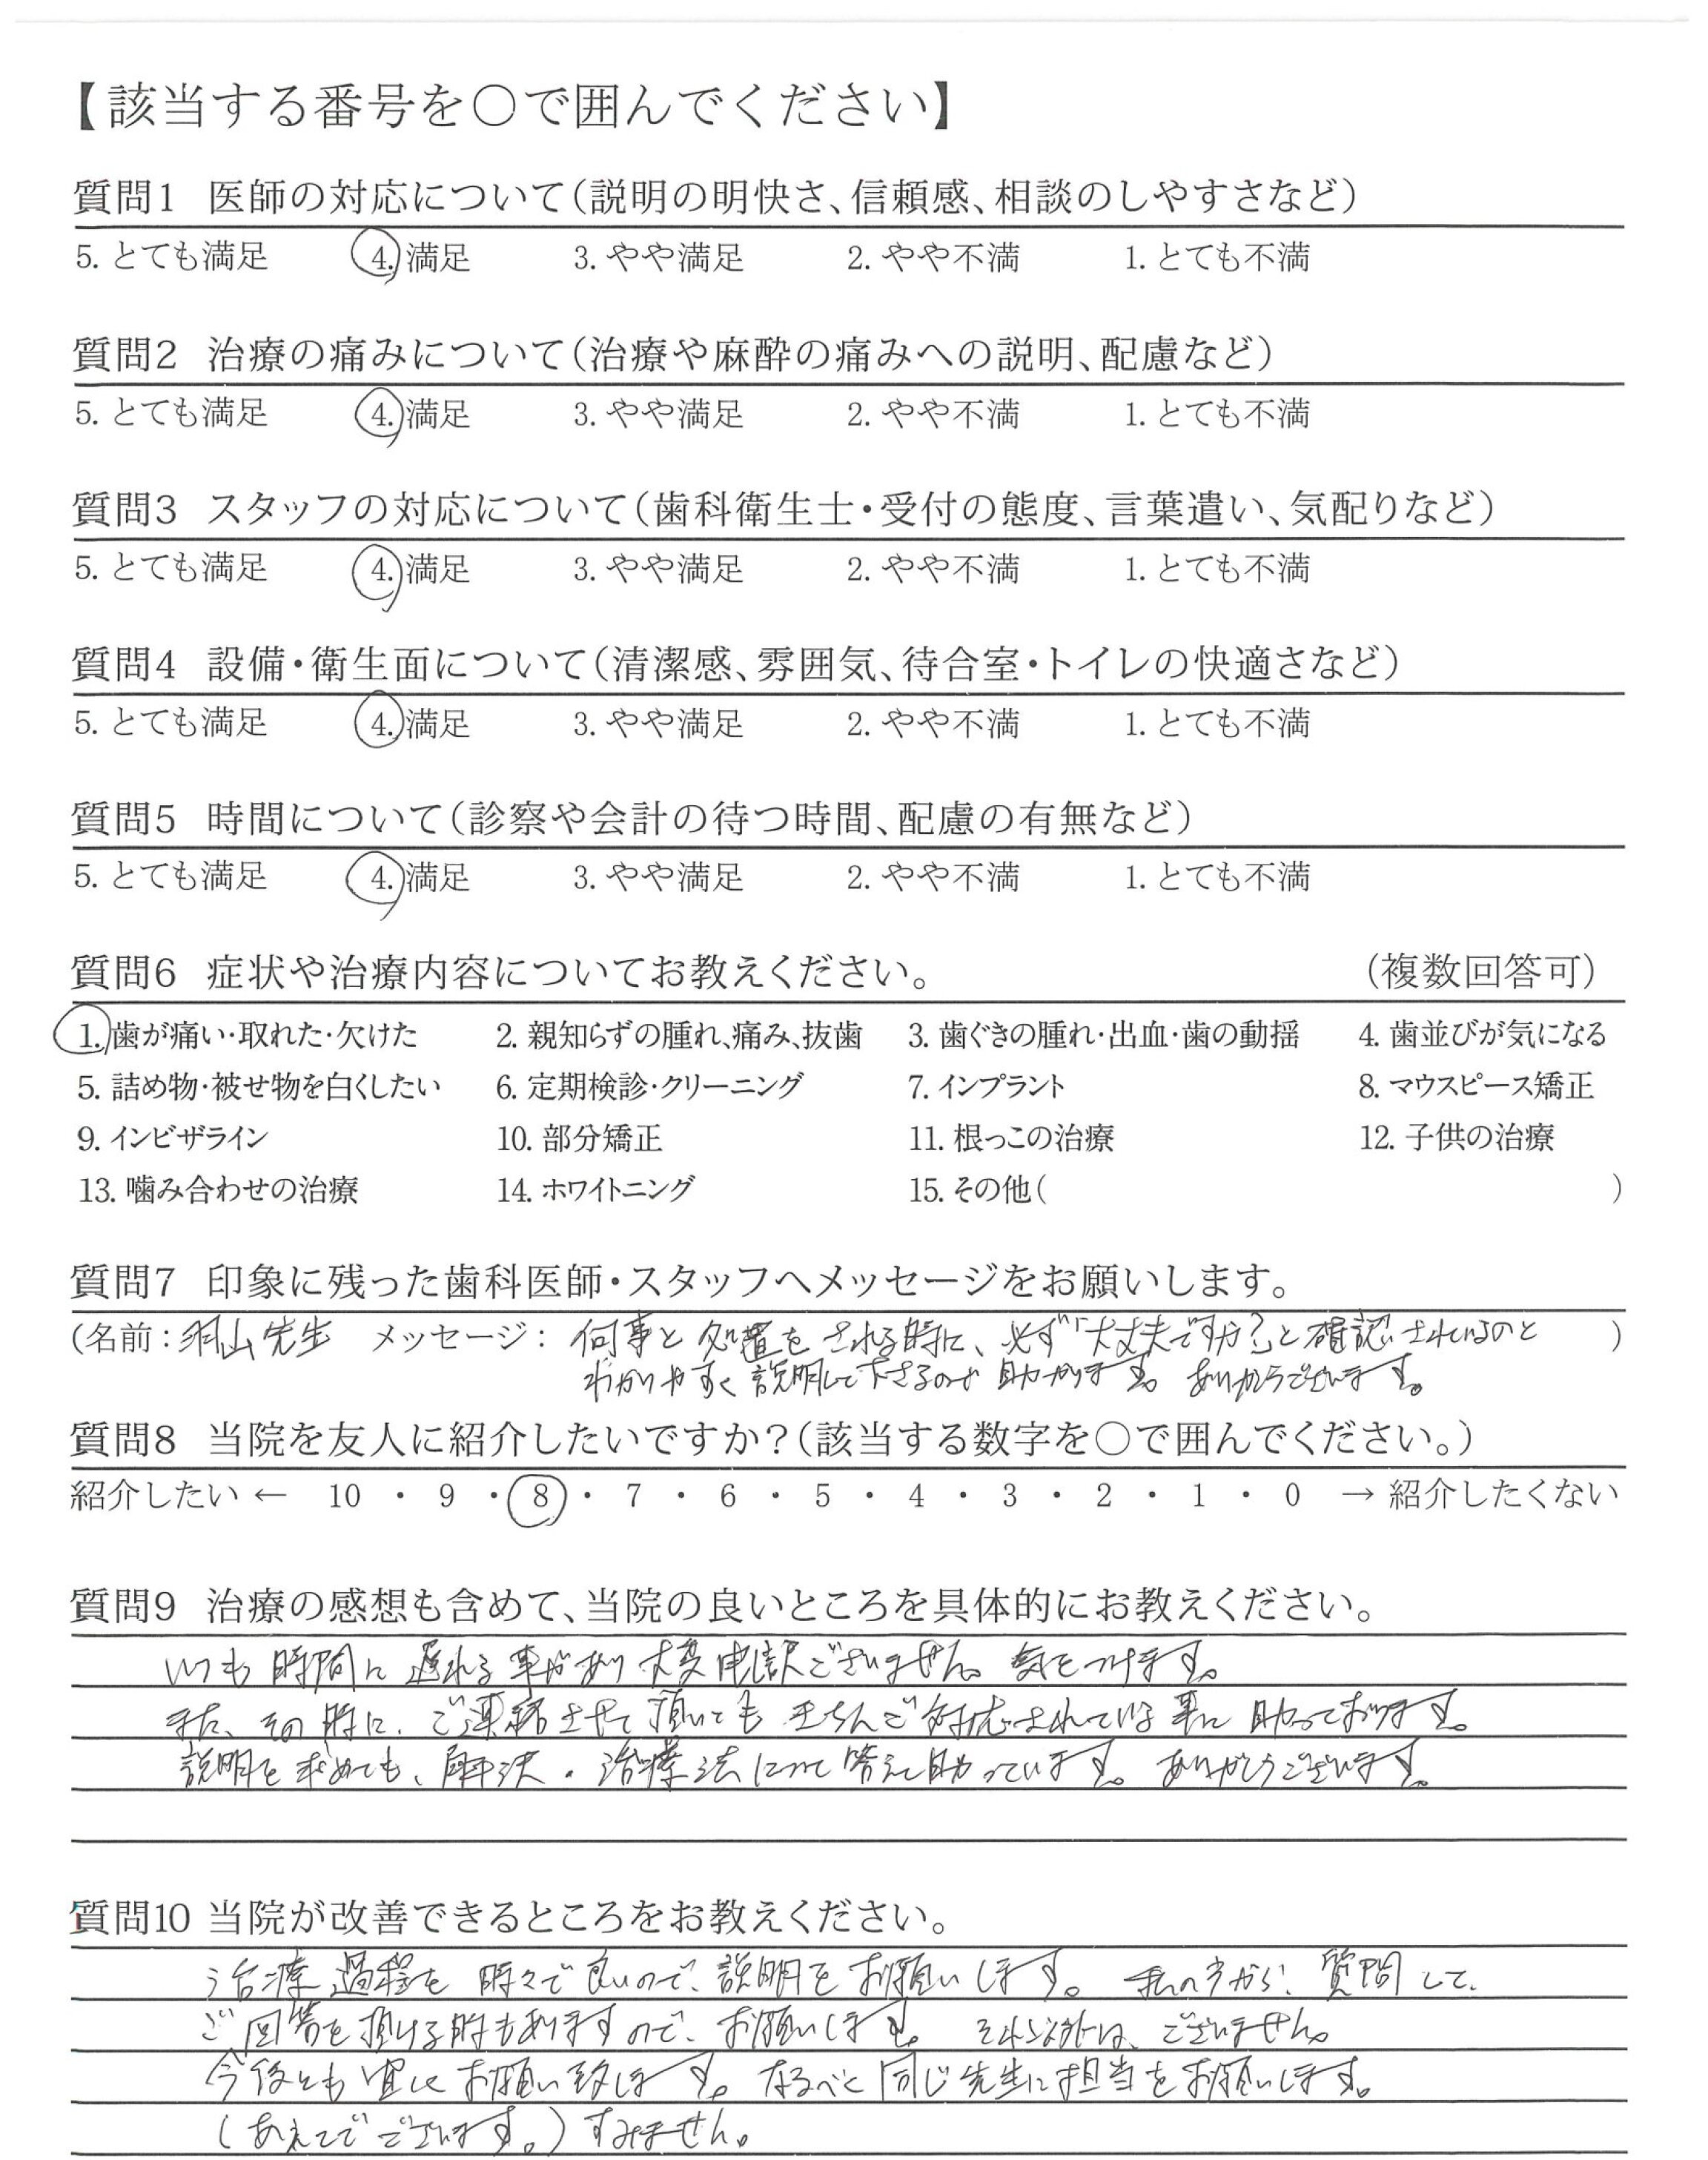 【該当する番号を〇で囲んでください】
質問1 医師の対応について(説明の明快さ、信頼感、相談のしやすさなど)
5. とても満足 4. 満足 3. やや満足 2. やや不満 1. とても不満
質問2 治療の痛みについて(治療や麻酔の痛みへの説明、配慮など)
5. とても満足 4. 満足 3. やや満足 2. やや不満 1. とても不満
質問3 スタッフの対応について(歯科衛生士・受付の態度、言葉遣い、気配りなど)
5. とても満足 4. 満足 3. やや満足 2. やや不満 1. とても不満
質問4 設備・衛生面について(清潔感、雰囲気、待合室・トイレの快適さなど)
5. とても満足 4. 満足 3. やや満足 2. やや不満 1. とても不満
質問5 時間について(診察や会計の待つ時間、配慮の有無など)
5. とても満足 4. 満足 3. やや満足 2. やや不満 1. とても不満
質問6 症状や治療内容についてお教えください。 (複数回答可)
1. 歯が痛い・取れた・欠けた 2. 親知らずの腫れ、痛み、抜歯 3. 歯ぐきの腫れ・出血・歯の動揺 4. 歯並びが気になる
5. 詰め物・被せ物を白くしたい 6. 定期検診・クリーニング 7. インプラント 8. マウスピース矯正
9. インビザライン 10. 部分矯正 11. 根っこの治療 12. 子供の治療
13. 噛み合わせの治療 14. ホワイトニング 15. その他( )
質問7 印象に残った歯科医師・スタッフへメッセージをお願いします。
(名前: 山先生 メッセージ: 何事と処置をされる時に、必ず「大丈夫ですか?」と確認されているのと )
わかりやすく説明して下さるので助かります。ありがとうございます。
質問8 当院を友人に紹介したいですか?(該当する数字を〇で囲んでください。)
紹介したい ← 10 ・ 9 ・ 8 ・ 7 ・ 6 ・ 5 ・ 4 ・ 3 ・ 2 ・ 1 ・ 0 → 紹介したくない
質問9 治療の感想も含めて、当院の良いところを具体的にお教えください。
いつも時間に遅れる事があり大変申し訳ございません。気をつけます。
また、その時に、ご連絡させて頂いてもきちんとご対応されている事に助かっております。
説明を求めても、解決・治療法について答えて助かっています。ありがとうございます。
質問10 当院が改善できるところをお教えください。
治療過程を時々で良いので、説明をお願いします。私の方から、質問して、
ご回答を頂ける時もありますので、お願いします。それ以外は、ございません。
今後とも宜しくお願い致します。なるべく同じ先生に担当をお願いします。
(あえてでございます。)すみません。